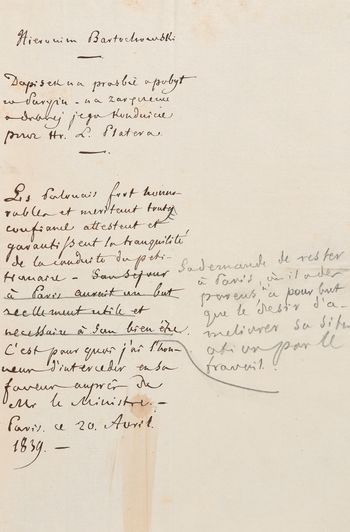 Hieronim Bartochowski
Dopisek na prosbie o pobyt
w Paryżu - na zaręczenie
o dobrej jego konduicie
przez Hr. L. Platera.
Les Polonais fort honno-
rables et meritant toute
confiance attestent et
garantissent la tranquilité
de la conduite du peti-
tionnaire - Son sejour
à Paris aurait un but
reellement utile et
necessaire à son bien être.
C'est pourquoi j'ai l'hon-
neur d'interceder en sa
faveur auprès de
Mr le Ministre. -
Paris. ce 20. Avril
1839. -
Sa demande de rester
à Paris, où il a des
parens, a pour but
que le desir d'a-
meliorer sa situ-
ation par le
travail.